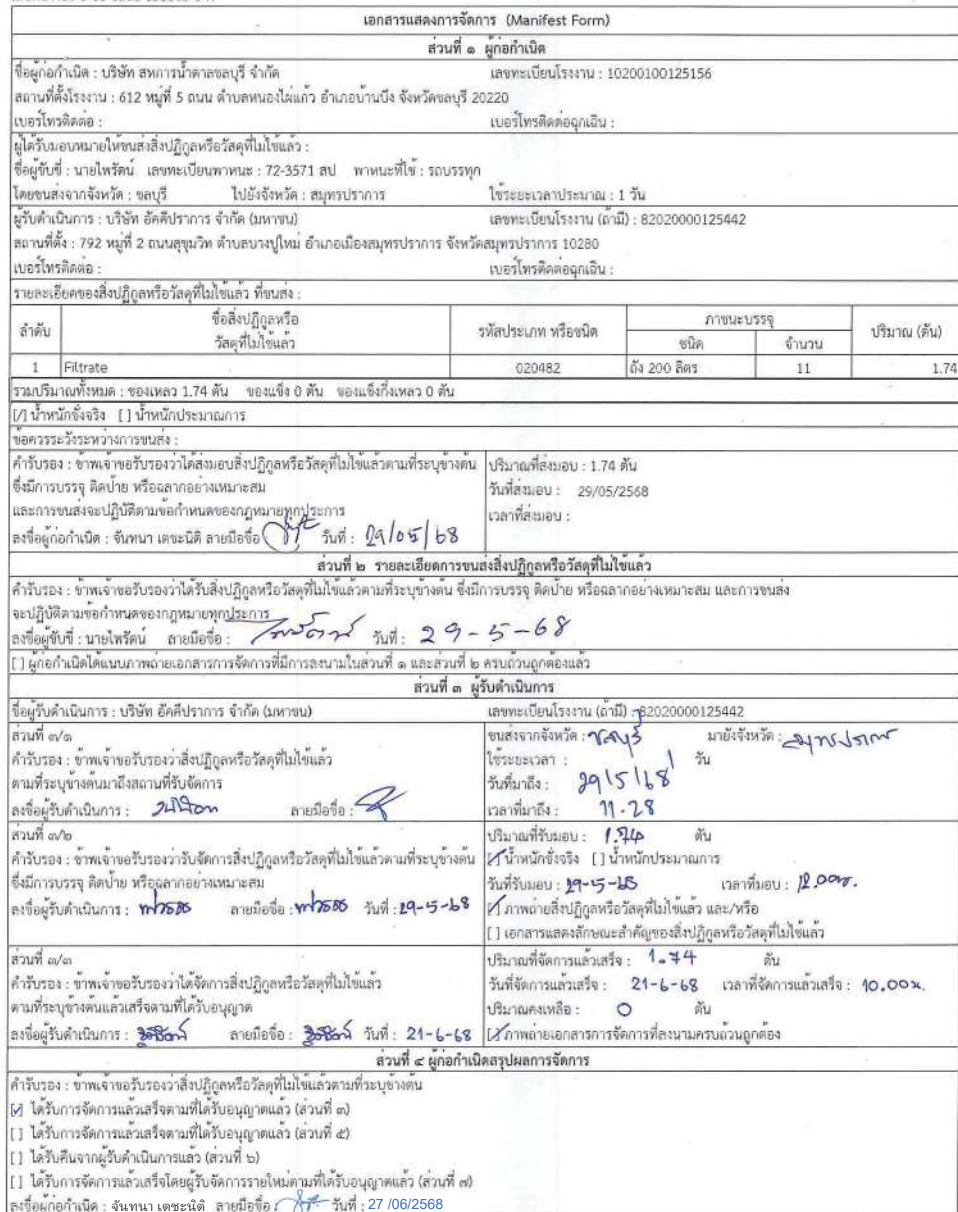 เอกสารแสดงการจัดการ (Manifest Form)
ส่วนที่ ๑ ผู้ก่อกำเนิด
ชื่อผู้ก่อกำเนิด : บริษัท สหการน้ำตาลชลบุรี จำกัด เลขทะเบียนโรงงาน : 10200100125156
สถานที่ตั้งโรงงาน : 612 หมู่ที่ 5 ถนน ตำบลหนองไผ่แก้ว อำเภอบ้านบึง จังหวัดชลบุรี 20220
เบอร์โทรติดต่อ : เบอร์โทรติดต่อฉุกเฉิน :
ผู้ได้รับมอบหมายให้ขนส่งสิ่งปฏิกูลหรือวัสดุที่ไม่ใช้แล้ว :
ชื่อผู้ขับขี่ : นายไพรัตน์ เลขทะเบียนพาหนะ : 72-3571 สป พาหนะที่ใช้ : รถบรรทุก
โดยขนส่งจากจังหวัด : ชลบุรี ไปยังจังหวัด : สมุทรปราการ ใช้ระยะเวลาประมาณ : 1 วัน
ผู้รับดำเนินการ : บริษัท อัคคีปราการ จำกัด (มหาชน) เลขทะเบียนโรงงาน (ถ้ามี) : 82020000125442
สถานที่ตั้ง : 792 หมู่ที่ 2 ถนนสุขุมวิท ตำบลบางปูใหม่ อำเภอเมืองสมุทรปราการ จังหวัดสมุทรปราการ 10280
เบอร์โทรติดต่อ : เบอร์โทรติดต่อฉุกเฉิน :
รายละเอียดของสิ่งปฏิกูลหรือวัสดุที่ไม่ใช้แล้ว ที่ขนส่ง :
ลำดับ ชื่อสิ่งปฏิกูลหรือ วัสดุที่ไม่ใช้แล้ว รหัสประเภท หรือชนิด ภาชนะบรรจุ ชนิด จำนวน ปริมาณ (ตัน)
1 Filtrate 020482 ถัง 200 ลิตร 11 1.74
รวมปริมาณทั้งหมด : ของเหลว 1.74 ตัน ของแข็ง 0 ตัน ของแข็งกึ่งเหลว 0 ตัน
[/] น้ำหนักชั่งจริง [ ] น้ำหนักประมาณการ
ข้อควรระวังระหว่างการขนส่ง :
คำรับรอง : ข้าพเจ้าขอรับรองว่าได้ส่งมอบสิ่งปฏิกูลหรือวัสดุที่ไม่ใช้แล้วตามที่ระบุข้างต้น ปริมาณที่ส่งมอบ : 1.74 ตัน
ซึ่งมีการบรรจุ ติดป้าย หรือฉลากอย่างเหมาะสม วันที่ส่งมอบ : 29/05/2568
และการขนส่งจะปฏิบัติตามข้อกำหนดของกฎหมายทุกประการ เวลาที่ส่งมอบ :
ลงชื่อผู้ก่อกำเนิด : จันทนา เตชะนิติ ลายมือชื่อ วันที่ : 29/05/68
ส่วนที่ ๒ รายละเอียดการขนส่งสิ่งปฏิกูลหรือวัสดุที่ไม่ใช้แล้ว
คำรับรอง : ข้าพเจ้าขอรับรองว่าได้รับสิ่งปฏิกูลหรือวัสดุที่ไม่ใช้แล้วตามที่ระบุข้างต้น ซึ่งมีการบรรจุ ติดป้าย หรือฉลากอย่างเหมาะสม และการขนส่ง
จะปฏิบัติตามข้อกำหนดของกฎหมายทุกประการ
ลงชื่อผู้ขับขี่ : นายไพรัตน์ ลายมือชื่อ : ไพรัตน์ วันที่ : 29-5-68
[ ] ผู้ก่อกำเนิดได้แนบภาพถ่ายเอกสารการจัดการที่มีการลงนามในส่วนที่ ๑ และส่วนที่ ๒ ครบถ้วนถูกต้องแล้ว
ส่วนที่ ๓ ผู้รับดำเนินการ
ชื่อผู้รับดำเนินการ : บริษัท อัคคีปราการ จำกัด (มหาชน) เลขทะเบียนโรงงาน (ถ้ามี) : 82020000125442
ส่วนที่ ๓/๑ ขนส่งจากจังหวัด : ชลบุรี มายังจังหวัด : สมุทรปราการ
คำรับรอง : ข้าพเจ้าขอรับรองว่าสิ่งปฏิกูลหรือวัสดุที่ไม่ใช้แล้ว ใช้ระยะเวลา : 1 วัน
ตามที่ระบุข้างต้นมาถึงสถานที่รับจัดการ วันที่มาถึง : 29/5/68
ลงชื่อผู้รับดำเนินการ : ลายมือชื่อ : เวลาที่มาถึง : 11.28
ส่วนที่ ๓/๒ ปริมาณที่รับมอบ : 1.74 ตัน
คำรับรอง : ข้าพเจ้าขอรับรองว่ารับจัดการสิ่งปฏิกูลหรือวัสดุที่ไม่ใช้แล้วตามที่ระบุข้างต้น [/] น้ำหนักชั่งจริง [ ] น้ำหนักประมาณการ
ซึ่งมีการบรรจุ ติดป้าย หรือฉลากอย่างเหมาะสม วันที่รับมอบ : 29-5-68 เวลาที่มอบ : 12.00น.
ลงชื่อผู้รับดำเนินการ : ลายมือชื่อ : วันที่ : 29-5-68 [/] ภาพถ่ายสิ่งปฏิกูลหรือวัสดุที่ไม่ใช้แล้ว และ/หรือ
[ ] เอกสารแสดงลักษณะสำคัญของสิ่งปฏิกูลหรือวัสดุที่ไม่ใช้แล้ว
ส่วนที่ ๓/๓ ปริมาณที่จัดการแล้วเสร็จ : 1.74 ตัน
คำรับรอง : ข้าพเจ้าขอรับรองว่าได้จัดการสิ่งปฏิกูลหรือวัสดุที่ไม่ใช้แล้ว วันที่จัดการแล้วเสร็จ : 21-6-68 เวลาที่จัดการแล้วเสร็จ : 10.00น.
ตามที่ระบุข้างต้นแล้วเสร็จตามที่ได้รับอนุญาต ปริมาณคงเหลือ : 0 ตัน
ลงชื่อผู้รับดำเนินการ : ลายมือชื่อ : วันที่ : 21-6-68 [/] ภาพถ่ายเอกสารการจัดการที่ลงนามครบถ้วนถูกต้อง
ส่วนที่ ๔ ผู้ก่อกำเนิดสรุปผลการจัดการ
คำรับรอง : ข้าพเจ้าขอรับรองว่าสิ่งปฏิกูลหรือวัสดุที่ไม่ใช้แล้วตามที่ระบุข้างต้น
[/] ได้รับการจัดการแล้วเสร็จตามที่ได้รับอนุญาตแล้ว (ส่วนที่ ๓)
[ ] ได้รับการจัดการแล้วเสร็จตามที่ได้รับอนุญาตแล้ว (ส่วนที่ ๕)
[ ] ได้รับคืนจากผู้รับดำเนินการแล้ว (ส่วนที่ ๖)
[ ] ได้รับการจัดการแล้วเสร็จโดยผู้รับจัดการรายใหม่ตามที่ได้รับอนุญาตแล้ว (ส่วนที่ ๗)
ลงชื่อผู้ก่อกำเนิด : จันทนา เตชะนิติ ลายมือชื่อ : วันที่ : 27 /06/2568